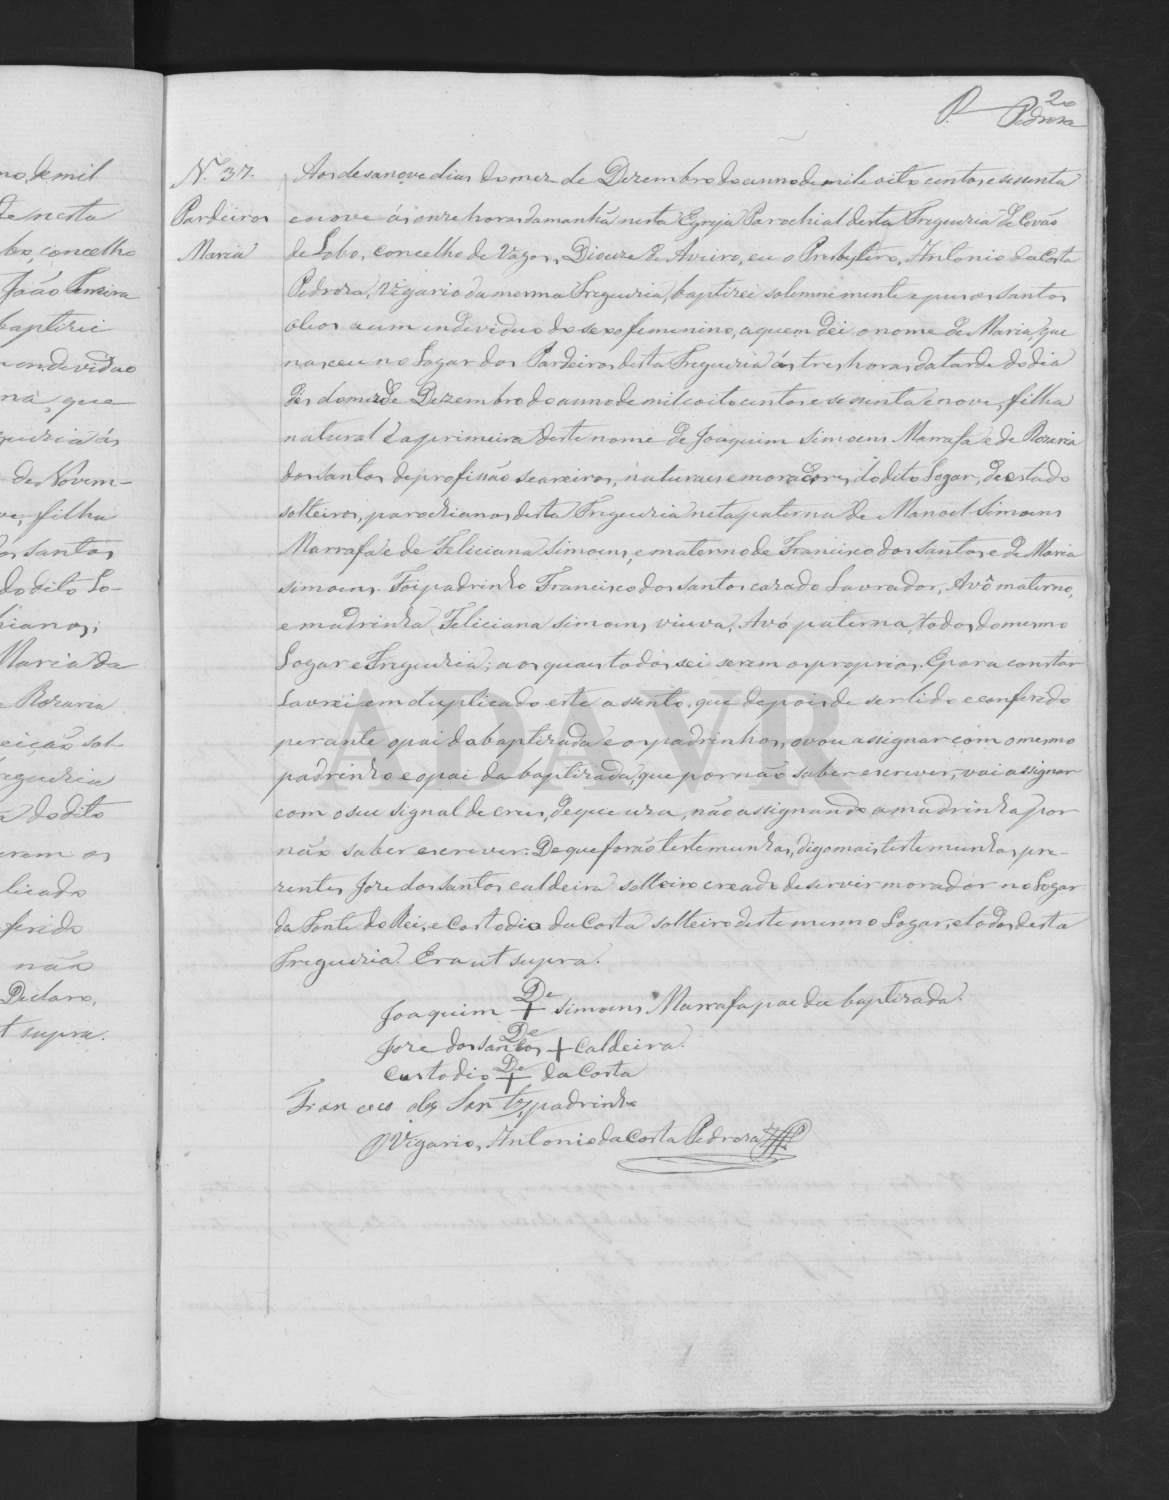 20
P. Pedroza
N. 37.
Pardeiros
Maria
Aos desanove dias do mez de Dezembro do anno de mil e oito centos e sesenta
e nove ás onze horas da manhã nesta Egreja Parochial desta Freguezia de Covão
de Lobo, concelho de Vagos, Dioceze de Aveiro, eu o Presbytero, Antonio da Costa
Pedroza, Vigario da mesma Freguezia, baptizei solemnemente e puz os santos
oleos a um individuo do sexo femenino, a quem dei o nome de Maria, que
nasceu no Logar dos Pardeiros desta Freguezia ás tres horas da tarde do dia
dés do mez de Dezembro do anno de mil e oito centos e sesenta e nove, filha
natural e a primeira deste nome de Joaquim Simoens Marrafa e de Rozaria
dos Santos de profissão seareiros, naturaes e moradores do dito Logar, de estado
solteiros, parochianos desta Freguezia neta paterna de Manoel Simoens
Marrafa e de Feliciana Simoens, e materno de Francisco dos Santos e de Maria
Simoens. Foi padrinho Francisco dos Santos cazado Lavrador, Avô materno,
e madrinha Feliciana Simoens, viuva, Avó paterna, todos do mesmo
Logar e Freguezia; aos quaes todos sei serem os proprios. E para constar
Lavrei em duplicado este assento, que depois de ser lido e conferido
perante o pai da baptizada e os padrinhos, o vou assignar com o mesmo
padrinho e o pai da baptizada, que por não saber escrever, vai assignar
com o seu signal de crus, de que uza, não assignando a madrinha por
não saber escrever. De que forão testemunhas, digo mais testemunhas pre-
zentes Joze dos Santos caldeira solteiro creado de servir morador no Logar
da Fonte do Rei, e Costodio da Costa solteiro deste mesmo Logar, e todos desta
Freguezia. Era ut supra.
Joaquim De + Simoens Marrafa pae da baptizada.
Joze dos Santos De + Caldeira.
Custodio De + da Costa
Francisco dos Santos padrinho
O Vigario, Antonio da Costa Pedroza
ADAVR
no de mil
de nesta
bo, concelho
João Ferreira
baptizei
individuo
na, que
guezia ás
de Novem-
filha
dos Santos
do dito Lo-
hianos;
Maria da
Rozaria
eição sol-
reguezia
a do dito
erem os
licado
ferido
não
Declaro,
t supra.